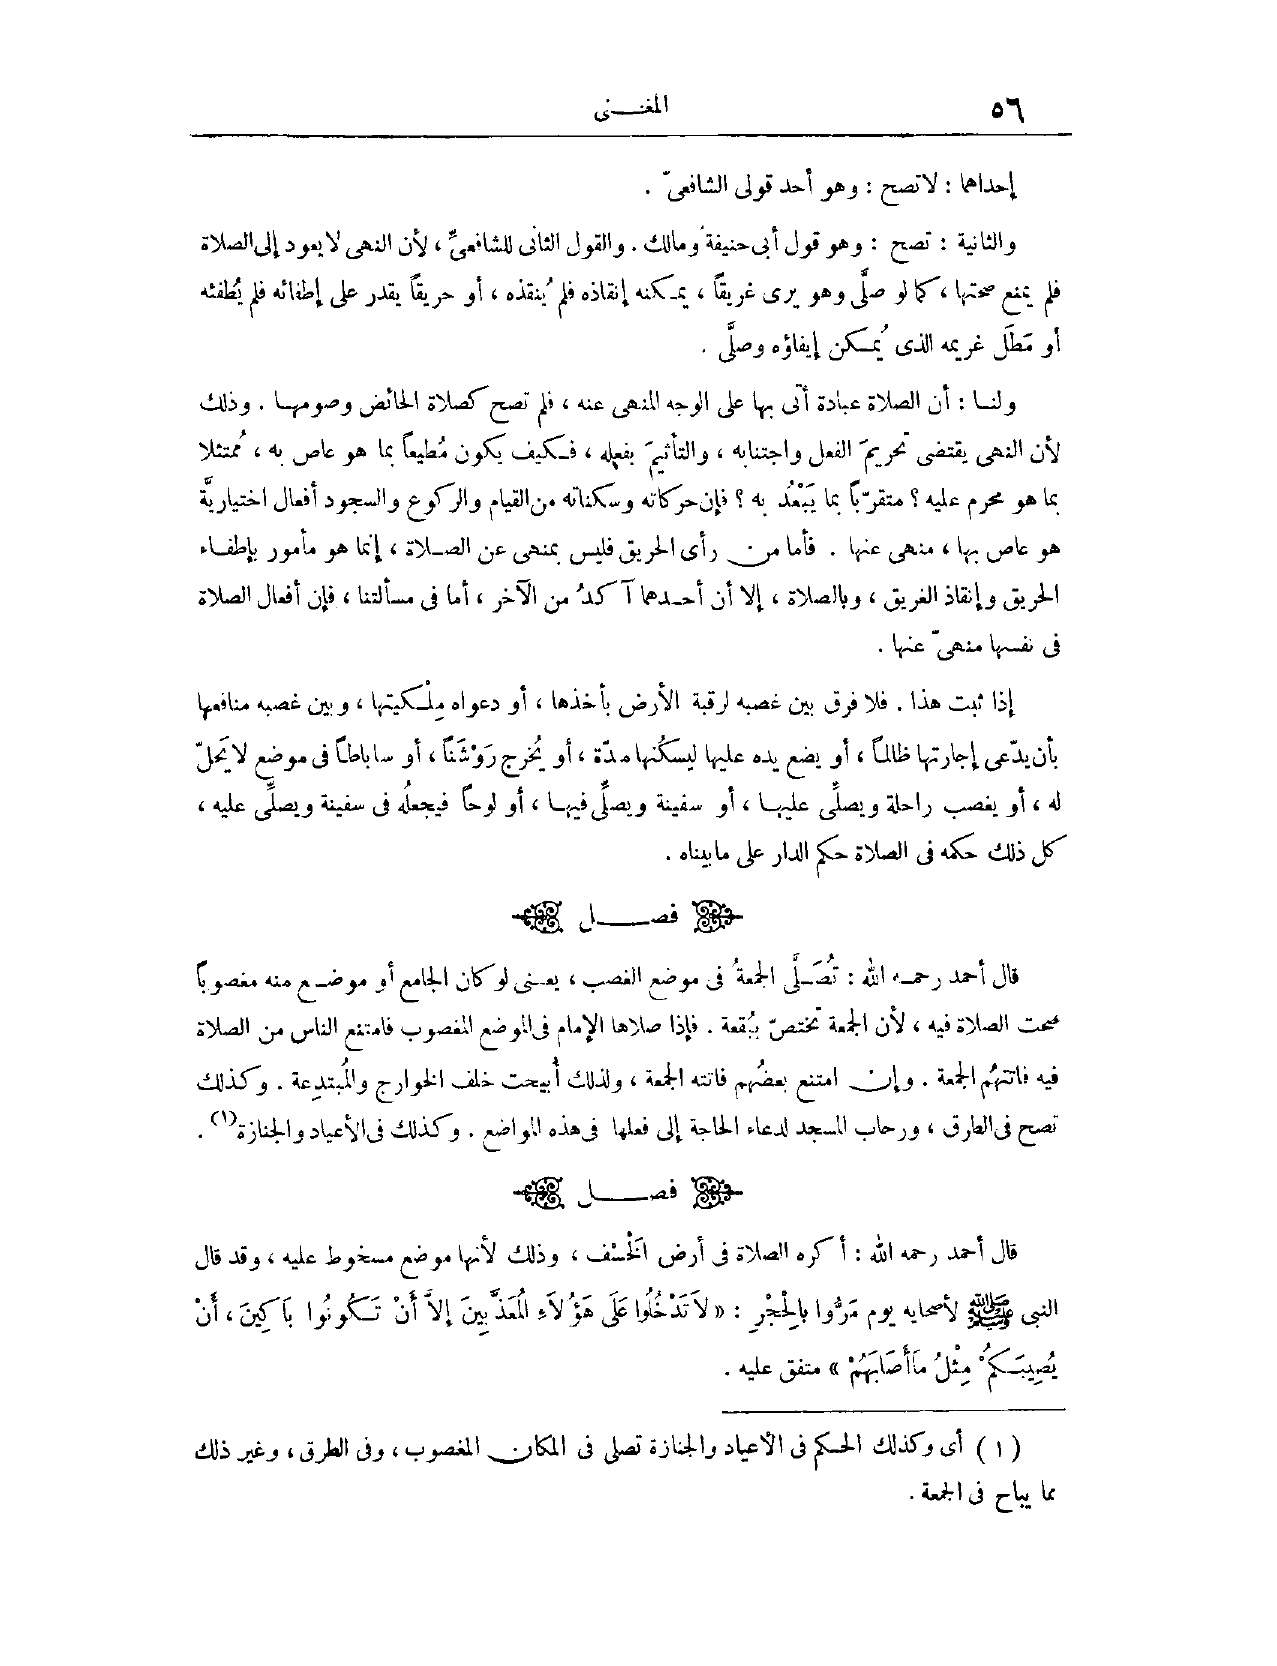 ٥٦
المغنى
إحداها : لا تصح : وهو أحد قولى الشافعىّ .
والثانية : تصح : وهو قول أبى حنيفة ومالك . والقول الثانى للشافعىّ ، لأن النهى لا يعود إلى الصلاة
فلم يمنع صحتها ، كما لو صلَّى وهو يرى غريقاً ، يمكنه إنقاذه فلم يُنقذه ، أو حريقاً يقدر على إطفائه فلم يُطفئه
أو مَطَل غريمه الذى يُمكن إيفاؤه وصلَّى .
ولنا : أن الصلاة عبادة أتى بها على الوجه المنهى عنه ، فلم تصح كصلاة الحائض وصومها . وذلك
لأن النهى يقتضى تحريمَ الفعل واجتنابه ، والتأثيمَ بفعله ، فكيف يكون مُطيعاً بما هو عاص به ، مُمتثلا
بما هو محرم عليه ؟ متقرّباً بما يَبْعُد به ؟ فإن حركاته وسكناته من القيام والركوع والسجود أفعال اختياريَّة
هو عاص بها ، منهى عنها . فأما من رأى الحريق فليس بمنهى عن الصلاة ، إنما هو مأمور بإطفاء
الحريق وإنقاذ الغريق ، وبالصلاة ، إلا أن أحدهما آكدُ من الآخر ، أما فى مسألتنا ، فإن أفعال الصلاة
فى نفسها منهىّ عنها .
إذا ثبت هذا . فلا فرق بين غصبه لرقبة الأرض بأخذها ، أو دعواه مِلْكيتها ، وبين غصبه منافعها
بأن يدّعى إجارتها ظالماً ، أو يضع يده عليها ليسكُنها مدّة ، أو يُخرج رَوْشَناً ، أو ساباطاً فى موضع لا يَحلّ
له ، أو يغصب راحلة ويصلِّى عليها ، أو سفينة ويصلِّى فيها ، أو لوحاً فيجعلُه فى سفينة ويصلِّى عليه ،
كل ذلك حكمه فى الصلاة حكم الدار على ما بيناه .
فصل
قال أحمد رحمه الله : تُصَلَّى الجمعةُ فى موضع الغصب ، يعنى لو كان الجامع أو موضع منه مغصوباً
صحت الصلاة فيه ، لأن الجمعة تختصّ ببُقعة . فإذا صلاها الإمام فى الموضع المغصوب فامتنع الناس من الصلاة
فيه فاتتهُم الجمعة . وإن امتنع بعضُهم فاتته الجمعة ، ولذلك أبيحت خلف الخوارج والمُبتدِعة . وكذلك
تصح فى الطرق ، ورحاب المسجد لدعاء الحاجة إلى فعلها فى هذه المواضع . وكذلك فى الأعياد والجنازة(١) .
فصل
قال أحمد رحمه الله : أكره الصلاة فى أرض الخَسْف ، وذلك لأنها موضع مسخوط عليه ، وقد قال
النبى ﷺ لأصحابه يوم مَرُّوا بالحِجْرِ : « لاَ تَدْخُلُوا عَلَى هَؤُلاَءِ المُعَذَّبِينَ إلاَّ أَنْ تَكُونُوا بَاكِينَ ، أَنْ
يُصِيبَكُمْ مِثْلُ مَا أَصَابَهُمْ » متفق عليه .
( ١ ) أى وكذلك الحكم فى الأعياد والجنازة تصلى فى المكان المغصوب ، وفى الطرق ، وغير ذلك
مما يباح فى الجمعة .